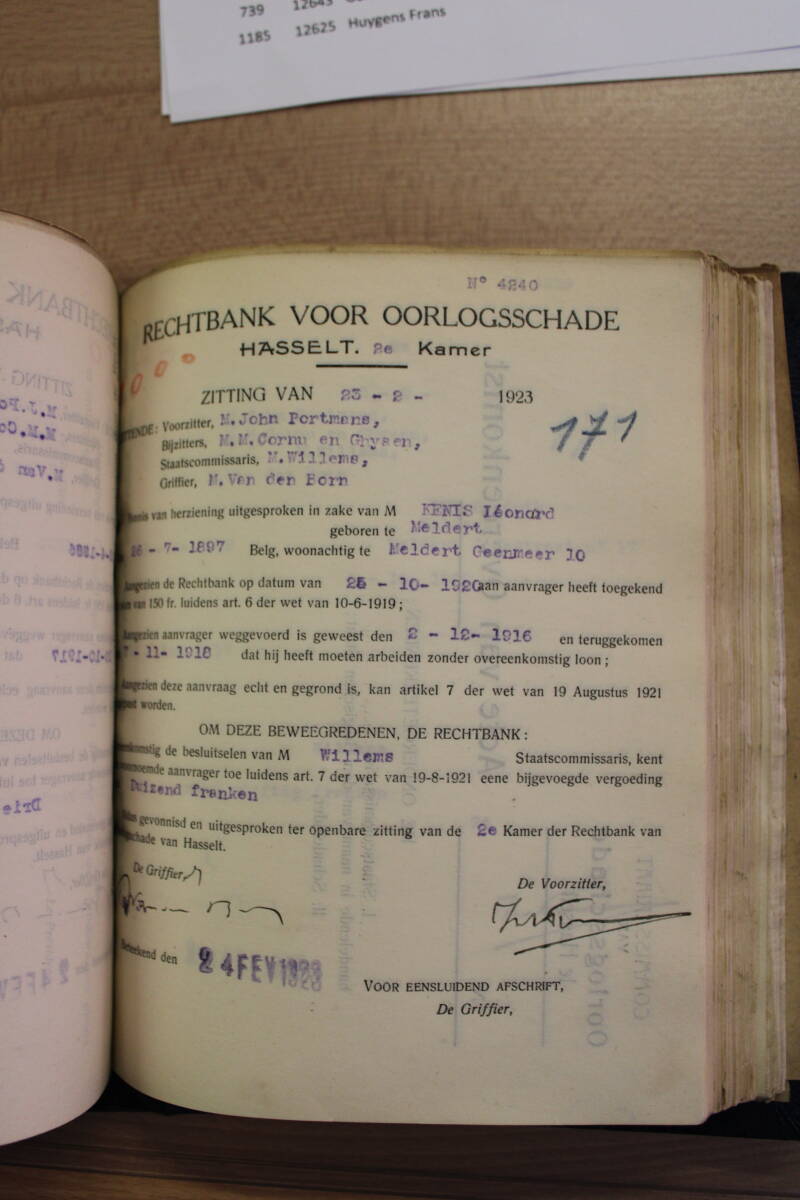 739 12643
1185 12625 Huygens Frans
N° 4240
RECHTBANK VOOR OORLOGSSCHADE
HASSELT. 2e Kamer
000
ZITTING VAN 23 - 2 - 1923
171
TENDE: Voorzitter, M. John Portmans,
Bijzitters, M.M. Cornu en Ghysen,
Staatscommissaris, M. Willems,
Griffier, M. Van den Born
nnis van herziening uitgesproken in zake van M KENIS Léonard
geboren te Meldert
16 - 7- 1897 Belg, woonachtig te Meldert Geenmeer 10
Aangezien de Rechtbank op datum van 25 - 10- 1920 aan aanvrager heeft toegekend
van 150 fr. luidens art. 6 der wet van 10-6-1919 ;
Aangezien aanvrager weggevoerd is geweest den 2 - 12- 1916 en teruggekomen
7 -11- 1918 dat hij heeft moeten arbeiden zonder overeenkomstig loon ;
Aangezien deze aanvraag echt en gegrond is, kan artikel 7 der wet van 19 Augustus 1921
past worden.
OM DEZE BEWEEGREDENEN, DE RECHTBANK :
komstig de besluitselen van M Willems Staatscommissaris, kent
noemde aanvrager toe luidens art. 7 der wet van 19-8-1921 eene bijgevoegde vergoeding
Duizend franken
gevonnisd en uitgesproken ter openbare zitting van de 2e Kamer der Rechtbank van
schade van Hasselt.
De Griffier,
De Voorzitter,
Beteekend den 24 FEV 1923
VOOR EENSLUIDEND AFSCHRIFT,
De Griffier,